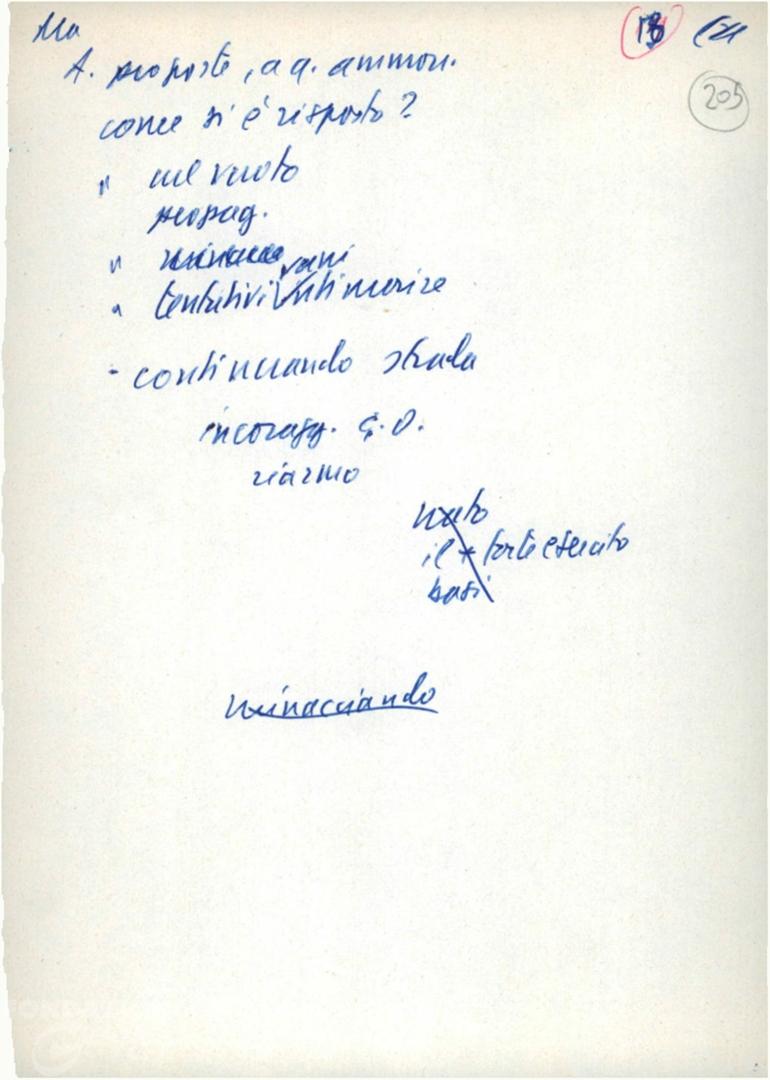 Ma
A. proposte, a q. ammon.
come si è risposto?
" nel vuoto
propag.
" minacce vani
" tentativi intimorire
- continuando strada
incoragg. G.O.
riarmo
nato
il + forte esercito
basi
minacciando
205